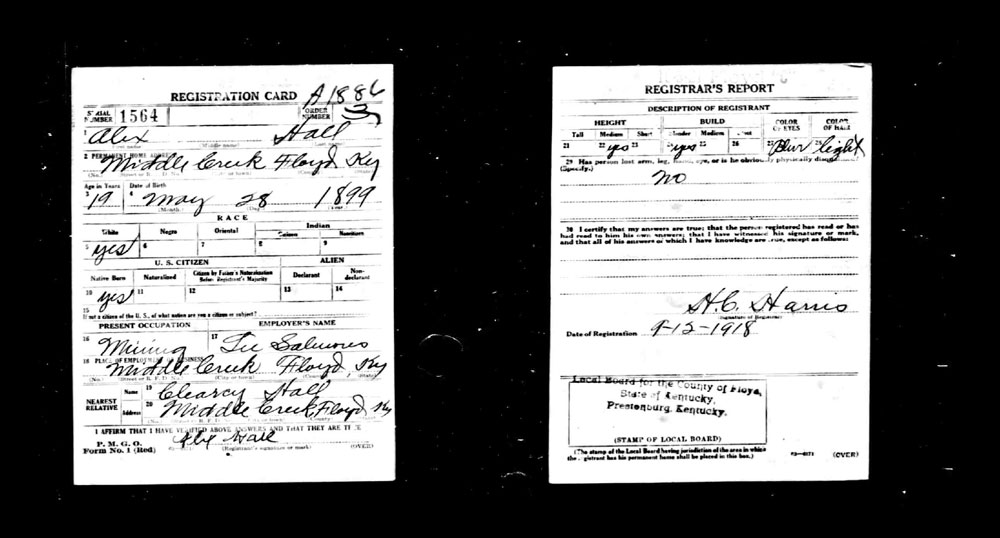 REGISTRATION CARD A1886
SERIAL NUMBER 1564 ORDER NUMBER 3
1 Alex Hall
2 PERMANENT HOME ADDRESS
Middle Creek Floyd Ky
Age in Years Date of Birth
3 19 4 May 28 1899
(Month.) (Day.)
RACE
White Negro Oriental Indian
Citizen Noncitizen
5 yes 6 7 8 9
U. S. CITIZEN ALIEN
Native Born Naturalized Citizen by Father's Naturalization Before Registrant's Majority Declarant Non-declarant
10 yes 11 12 13 14
15 If not a citizen of the U. S., of what nation are you a citizen or subject?
PRESENT OCCUPATION EMPLOYER'S NAME
16 Mining 17
18 PLACE OF EMPLOYMENT OR BUSINESS
Middle Creek Floyd, Ky
(No.) (Street or R. F. D. No.) (City or town)
NEAREST RELATIVE Name 19 Hall
Address 20 Middle Creek, Floyd, Ky
I AFFIRM THAT I HAVE VERIFIED ABOVE ANSWERS AND THAT THEY ARE TRUE
P. M. G. O.
Form No. 1 (Red) Alex Hall
(Registrant's signature or mark) (OVER)
REGISTRAR'S REPORT
DESCRIPTION OF REGISTRANT
HEIGHT BUILD COLOR OF EYES COLOR OF HAIR
Tall Medium Short Slender Medium Stout
21 22 yes 23 24 yes 25 26 27 Blue 28 light
29 Has person lost arm, leg, hand, eye, or is he obviously physically disqualified?
(Specify.)
no
30 I certify that my answers are true; that the person registered has read or has
had read to him his own answers; that I have witnessed his signature or mark,
and that all of his answers of which I have knowledge are true, except as follows:
H.C. Harris
(Signature of Registrar)
Date of Registration 9-12-1918
Local Board for the County of Floyd,
State of Kentucky,
Prestonburg, Kentucky.
(STAMP OF LOCAL BOARD)
(The stamp of the Local Board having jurisdiction of the area in which
the registrant has his permanent home shall be placed in this box.)
(OVER)